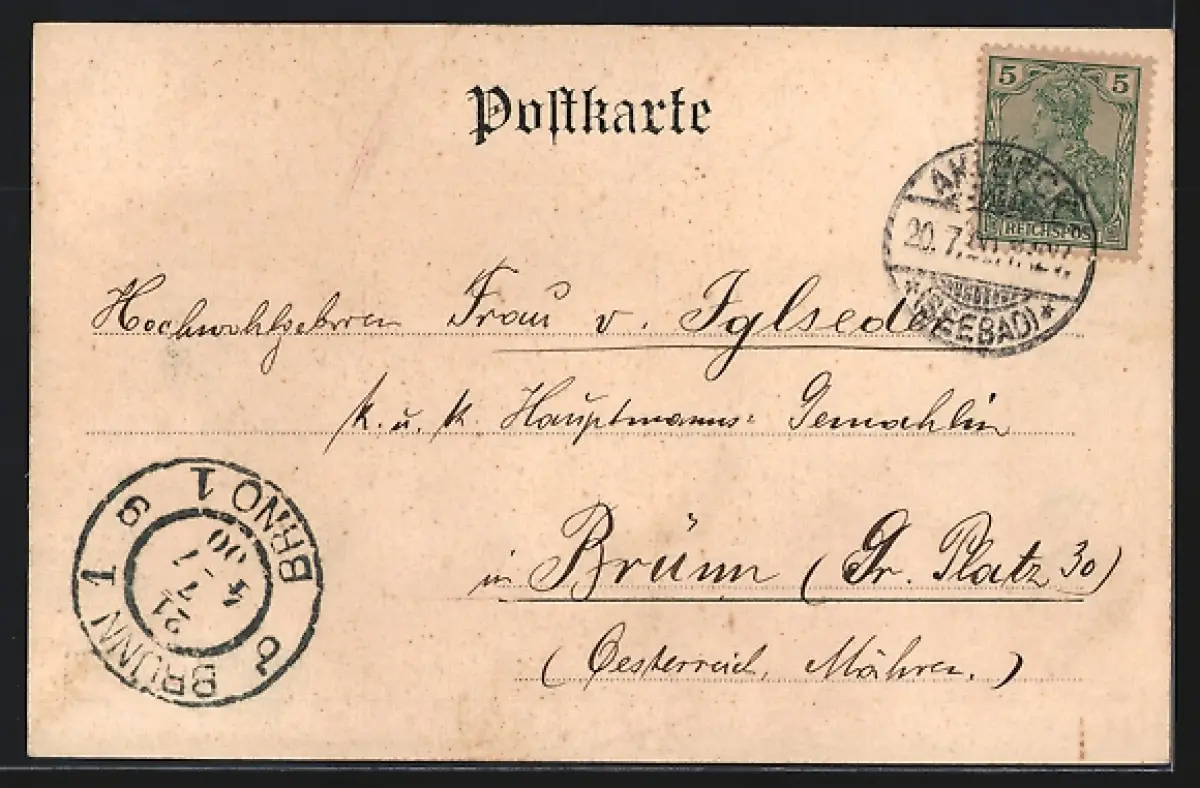 Postkarte
5 5
REICHSPOS
20. 7.
* (SEEBAD) *
Hochwohlgeboren Frau v.
k. u. k. Hauptmanns: Gemahlin
in Brünn (Gr. Platz 30)
(Oesterreich, Mähren.)
BRNO 1
BRÜNN 1
21
7
00